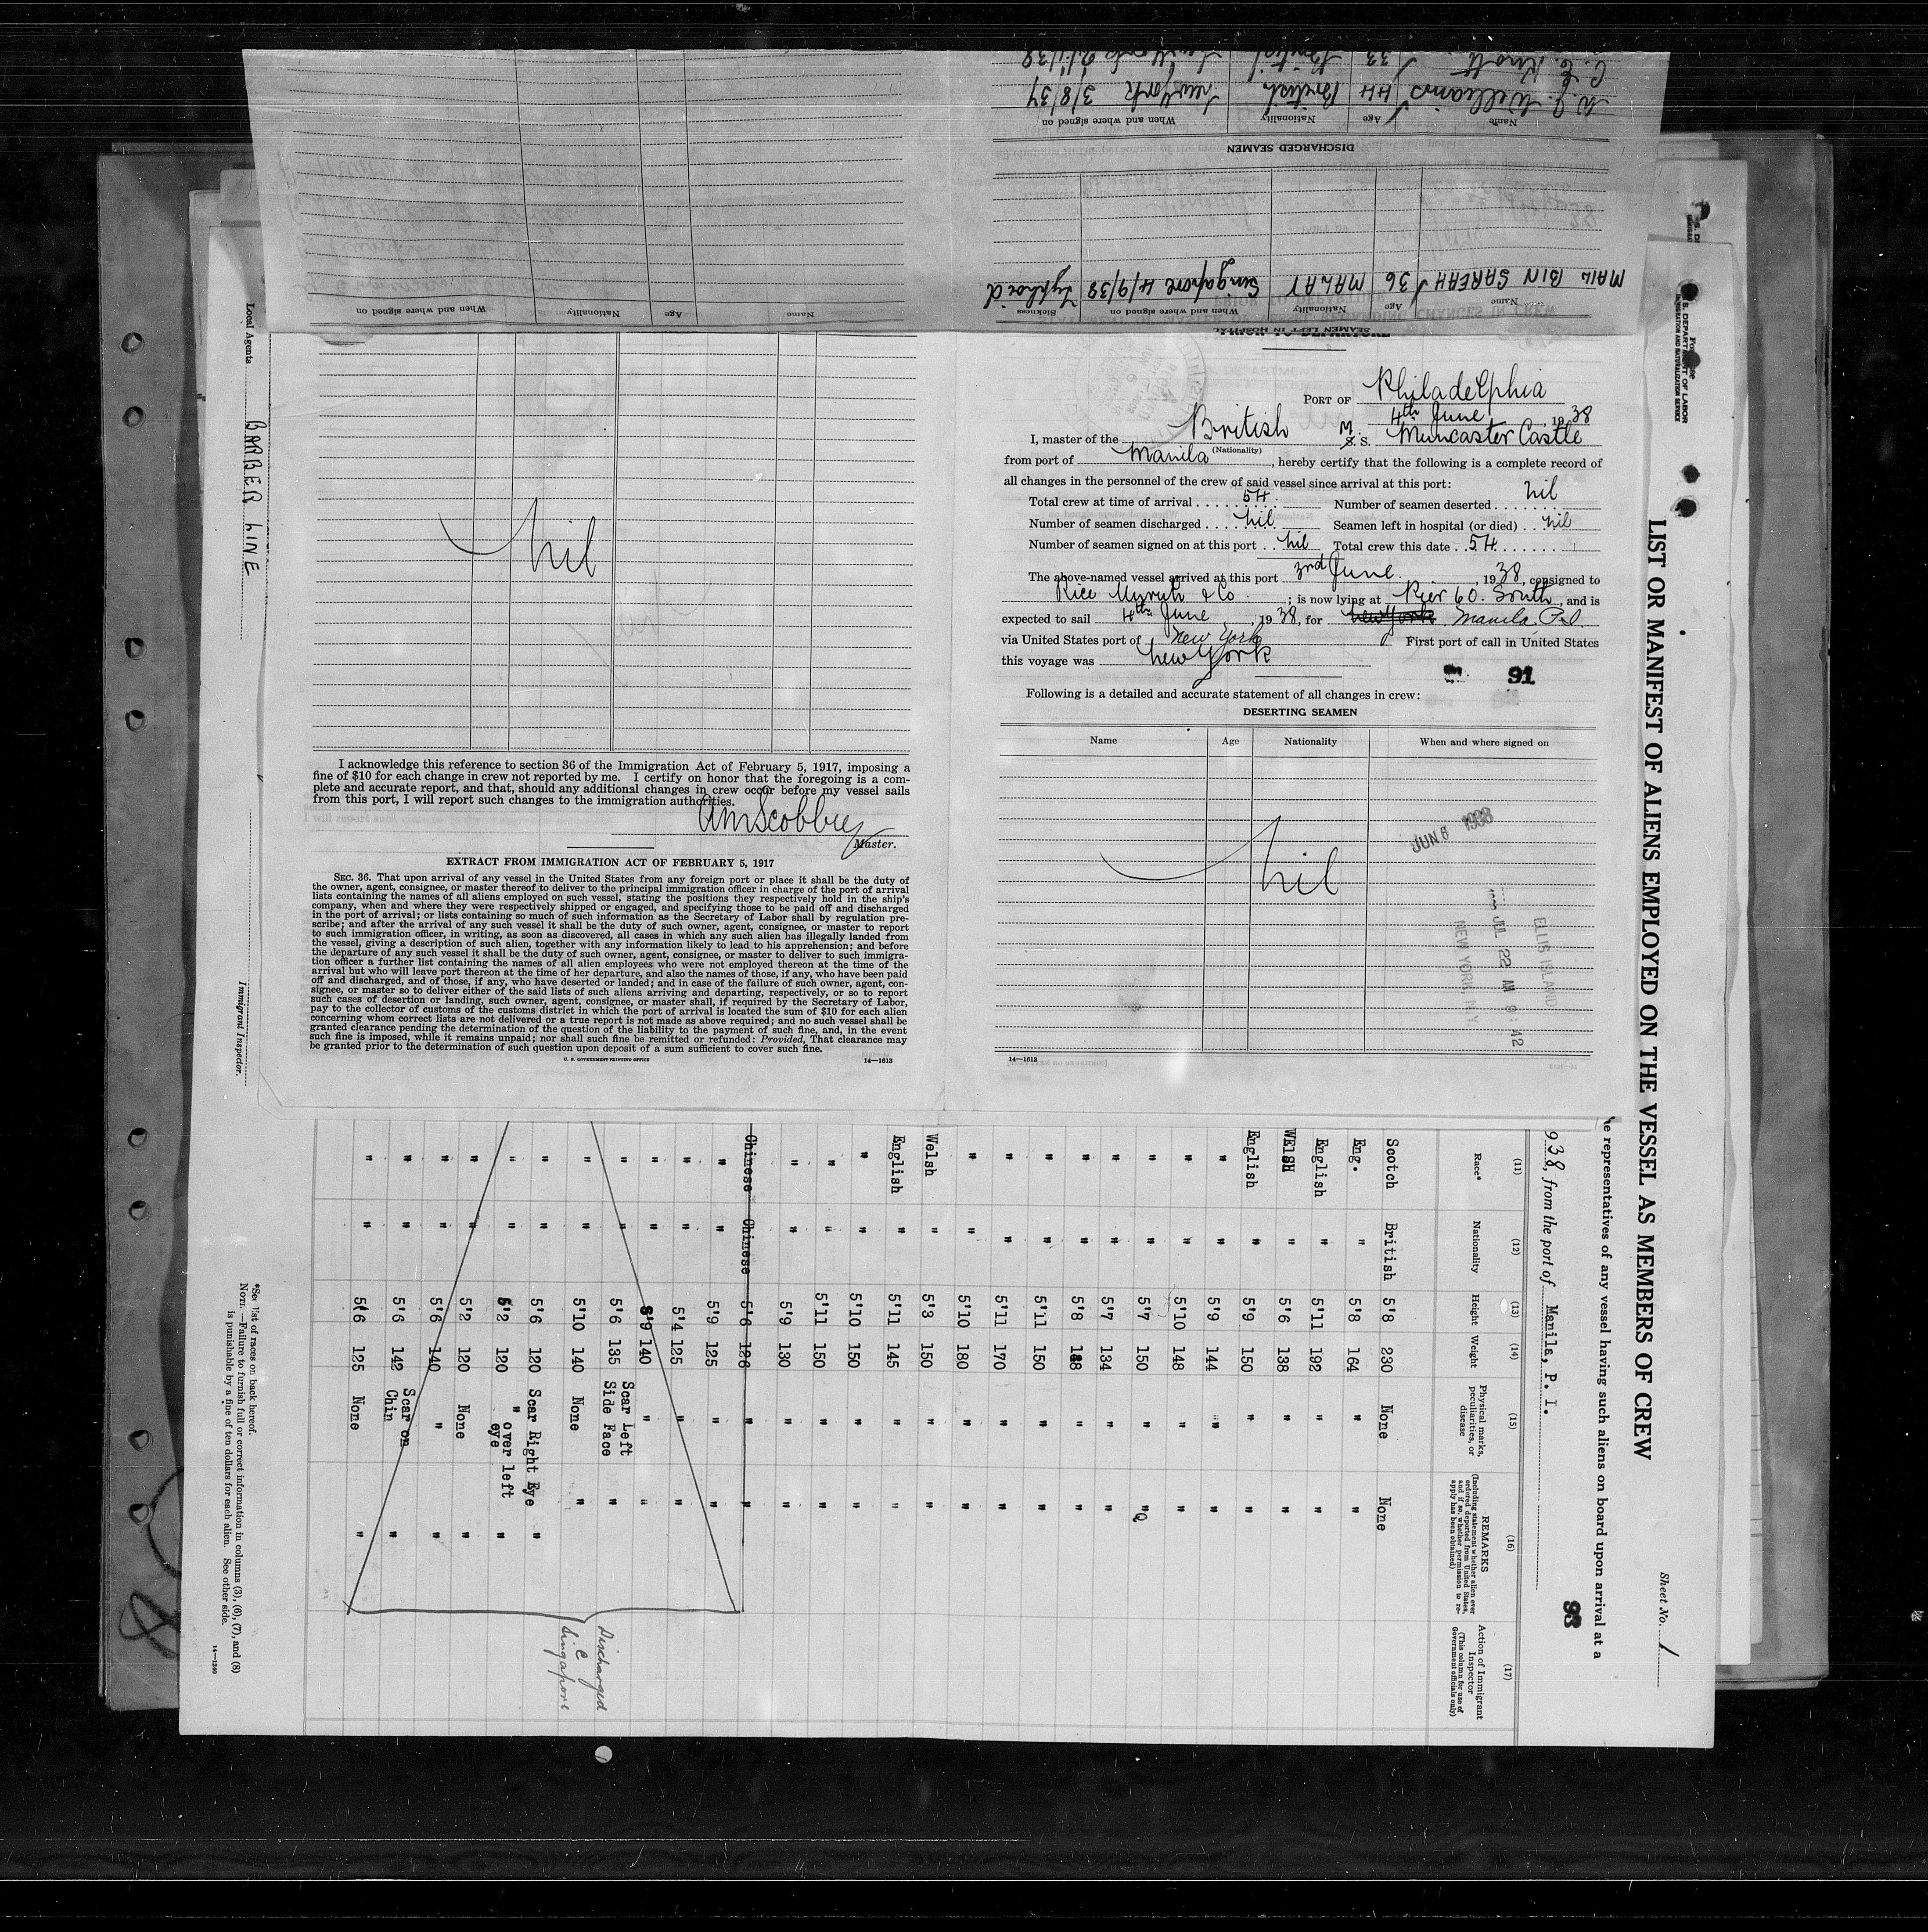 C. E. Knott 33 British New York 2/1/38
W. J. Williams 44 British New York 3/8/37
Name Age Nationality When and where signed on
DISCHARGED SEAMEN
MAIL BIN SAREAH 36 MALAY Singapore 4/9/38 Typhoid
Name Age Nationality When and where signed on Sickness
Name Age Nationality When and where signed on
SEAMEN LEFT IN HOSPITAL
PRIOR TO DEPARTURE
PORT OF Philadelphia
4th June, 1938
I, master of the British M. S. Muncaster Castle
(Nationality)
from port of Manila, hereby certify that the following is a complete record of
all changes in the personnel of the crew of said vessel since arrival at this port:
Total crew at time of arrival 54. Number of seamen deserted nil
Number of seamen discharged nil Seamen left in hospital (or died) nil
Number of seamen signed on at this port nil Total crew this date 54
The above-named vessel arrived at this port 3rd June, 1938, consigned to
Rice & Co.; is now lying at Pier 60. South, and is
expected to sail 4th June, 1938, for New York Manila P.I.
via United States port of New York First port of call in United States
this voyage was New York
91
Following is a detailed and accurate statement of all changes in crew:
DESERTING SEAMEN
Name Age Nationality When and where signed on
nil
JUN 6 1938
ELLIS ISLAND
JUL 22 AM 9:42
NEW YORK N.Y.
14—1613
Local Agents BARBER LINE
Immigrant Inspector.
nil
I acknowledge this reference to section 36 of the Immigration Act of February 5, 1917, imposing a
fine of $10 for each change in crew not reported by me. I certify on honor that the foregoing is a com-
plete and accurate report, and that, should any additional changes in crew occur before my vessel sails
from this port, I will report such changes to the immigration authorities.
AM Scobbie
Master.
EXTRACT FROM IMMIGRATION ACT OF FEBRUARY 5, 1917
SEC. 36. That upon arrival of any vessel in the United States from any foreign port or place it shall be the duty of
the owner, agent, consignee, or master thereof to deliver to the principal immigration officer in charge of the port of arrival
lists containing the names of all aliens employed on such vessel, stating the positions they respectively hold in the ship's
company, when and where they were respectively shipped or engaged, and specifying those to be paid off and discharged
in the port of arrival; or lists containing so much of such information as the Secretary of Labor shall by regulation pre-
scribe; and after the arrival of any such vessel it shall be the duty of such owner, agent, consignee, or master to report
to such immigration officer, in writing, as soon as discovered, all cases in which any such alien has illegally landed from
the vessel, giving a description of such alien, together with any information likely to lead to his apprehension; and before
the departure of any such vessel it shall be the duty of such owner, agent, consignee, or master to deliver to such immigra-
tion officer a further list containing the names of all alien employees who were not employed thereon at the time of the
arrival but who will leave port thereon at the time of her departure, and also the names of those, if any, who have been paid
off and discharged, and of those, if any, who have deserted or landed; and in case of the failure of such owner, agent, con-
signee, or master so to deliver either of the said lists of such aliens arriving and departing, respectively, or so to report
such cases of desertion or landing, such owner, agent, consignee, or master shall, if required by the Secretary of Labor,
pay to the collector of customs of the customs district in which the port of arrival is located the sum of $10 for each alien
concerning whom correct lists are not delivered or a true report is not made as above required; and no such vessel shall be
granted clearance pending the determination of the question of the liability to the payment of such fine, and, in the event
such fine is imposed, while it remains unpaid; nor shall such fine be remitted or refunded: Provided, That clearance may
be granted prior to the determination of such question upon deposit of a sum sufficient to cover such fine.
U. S. GOVERNMENT PRINTING OFFICE 14—1613
U. S. DEPARTMENT OF LABOR
IMMIGRATION AND NATURALIZATION SERVICE
LIST OR MANIFEST OF ALIENS EMPLOYED ON THE VESSEL AS MEMBERS OF CREW
Sheet No. 1
representatives of any vessel having such aliens on board upon arrival at a
93
938, from the port of Manila, P. I.
(11) (12) (13) (14) (15) (16) (17)
Race* Nationality Height Weight Physical marks, peculiarities, or disease REMARKS (Including statement whether alien ever ordered deported from United States, and if so, whether permission to re-apply has been obtained) Action of Immigrant Inspector (This column for use of Government officials only)
Scotch British 5'8 230 None None
Eng. " 5'8 164 " "
English " 5'11 192 " "
WELSH " 5'6 138 " "
English " 5'9 150 " "
" " 5'9 144 " "
" " 5'10 148 " "
" " 5'7 150 " "
" " 5'7 134 " "
" " 5'8 188 " "
" " 5'11 150 " "
" " 5'11 170 " "
" " 5'10 180 " "
Welsh " 5'3 150 " "
English " 5'11 145 " "
" " 5'10 150 " "
" " 5'11 150 " "
" " 5'9 130 " "
Chinese Chinese 5'6 126 " "
" " 5'9 125 " "
" " 5'4 125 " "
" " 5'9 140 " "
" " 5'6 135 Scar Left Side Face "
" " 5'10 140 None "
" " 5'6 120 Scar Right Eye "
" " 5'2 120 " over left eye "
" " 5'2 120 None "
" " 5'6 140 " "
" " 5'6 142 Scar on Chin "
" " 5'6 125 None "
Discharged
@
Singapore
*See list of races on back hereof.
NOTE.—Failure to furnish full or correct information in columns (3), (6), (7), and (8)
is punishable by a fine of ten dollars for each alien. See other side.
14—1240